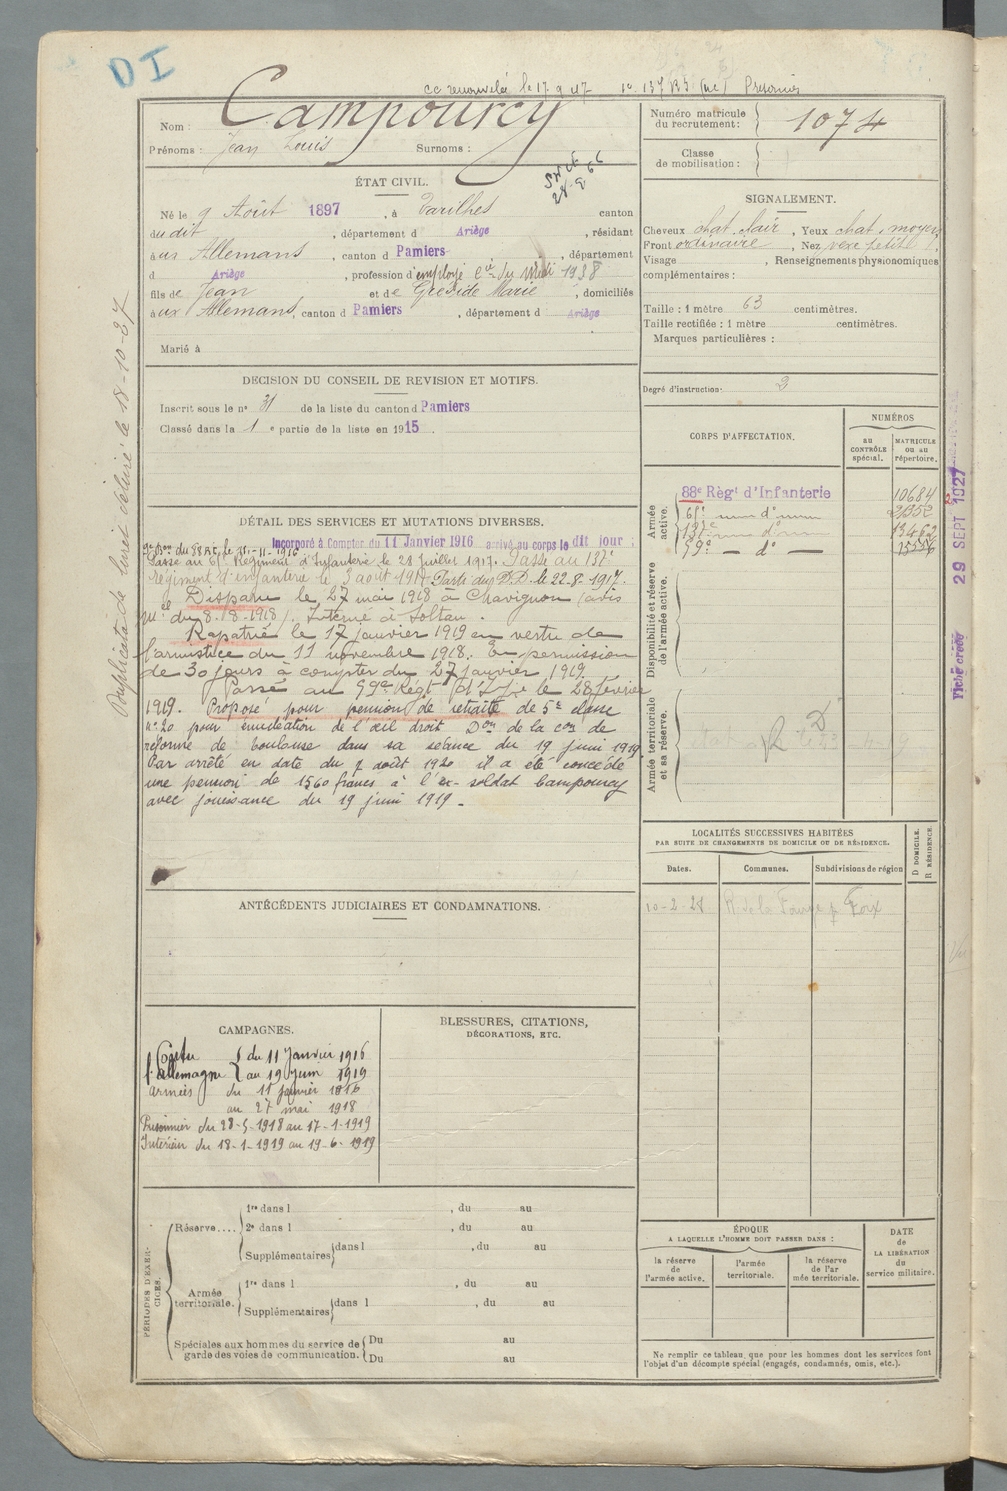 DI
cc renouvelé le 17 9 47 Prisonnier
Nom : Campourcy
Prénoms : Jean Louis Surnoms :
Numéro matricule du recrutement : 1074
Classe de mobilisation :
ÉTAT CIVIL.
Né le 9 Août 1897, à Varilhes canton
du dit, département d Ariège, résidant
à ux Allemans, canton d Pamiers, département
d Ariège, profession d'employé Cie du Midi 1938
fils de Jean et de Marie, domiciliés
à ux Allemans, canton d Pamiers, département d Ariège
Marié à
SIGNALEMENT.
Cheveux chat. clair, Yeux chat. moyen
Front ordinaire, Nez
Visage , Renseignements physionomiques
complémentaires :
Taille : 1 mètre 63 centimètres.
Taille rectifiée : 1 mètre centimètres.
Marques particulières :
Degré d'instruction. 3
DECISION DU CONSEIL DE REVISION ET MOTIFS.
Inscrit sous le n° 31 de la liste du canton d Pamiers
Classé dans la 1 e partie de la liste en 1915.
Duplicata de livret délivré le 18-10-27
CORPS D'AFFECTATION.
NUMÉROS
au CONTRÔLE spécial.
MATRICULE ou au répertoire.
Armée active.
88e Régt d'Infanterie 10684
61e d°
137e d° 13462
99e — d° —
Disponibilité et réserve de l'armée active.
Armée territoriale et sa réserve.
R D
29 SEPT 1927
Fiche créée
DÉTAIL DES SERVICES ET MUTATIONS DIVERSES.
Incorporé à Compter du 11 Janvier 1916 arrivé au corps le dit jour ;
Passé au 61e Régiment d'Infanterie le 28 Juillet 1917. Passé au 137e
régiment d'infanterie le 3 août 1917 Parti du D.D. le 22-8-1917.
Disparu le 27 mai 1918 à Chavignon (avis
du 8-18-1918). Interné à Soltau.
Rapatrié le 17 janvier 1919 en vertu de
l'armistice du 11 novembre 1918. En permission
de 30 jours à compter du 27 janvier 1919.
Passé au 99e Régt d'Ie le 28 février
1919. Proposé pour pension de retraite de 5e classe
n° 20 pour énucléation de l'œil droit Don de la con de
réforme de Toulouse dans sa séance du 19 juin 1919.
Par arrêté en date du 7 août 1920 il a été concédé
une pension de 1560 francs à l'ex-soldat Campourcy
avec jouissance du 19 juin 1919 -
LOCALITÉS SUCCESSIVES HABITÉES
PAR SUITE DE CHANGEMENTS DE DOMICILE OU DE RÉSIDENCE.
Dates. Communes. Subdivisions de région
D DOMICILE.
R RÉSIDENCE.
10-2-28 R de la Foix
ANTÉCÉDENTS JUDICIAIRES ET CONDAMNATIONS.
CAMPAGNES.
Contre du 11 Janvier 1916
l'allemagne au 19 Juin 1919
armées du 11 janvier 1916
au 27 mai 1918
Prisonnier du 28-5-1918 au 17-1-1919
Intérieur du 18-1-1919 au 19-6-1919
BLESSURES, CITATIONS,
DÉCORATIONS, ETC.
PÉRIODES D'EXERCICES.
Réserve.... 1re dans l , du au
2e dans l , du au
Supplémentaires dans l , du au
Armée territoriale. 1re dans l , du au
Supplémentaires dans l , du au
Spéciales aux hommes du service de garde des voies de communication. Du au
Du au
ÉPOQUE
A LAQUELLE L'HOMME DOIT PASSER DANS :
la réserve de l'armée active.
l'armée territoriale.
la réserve de l'armée territoriale.
DATE de LA LIBÉRATION du service militaire.
Ne remplir ce tableau que pour les hommes dont les services font
l'objet d'un décompte spécial (engagés, condamnés, omis, etc.).